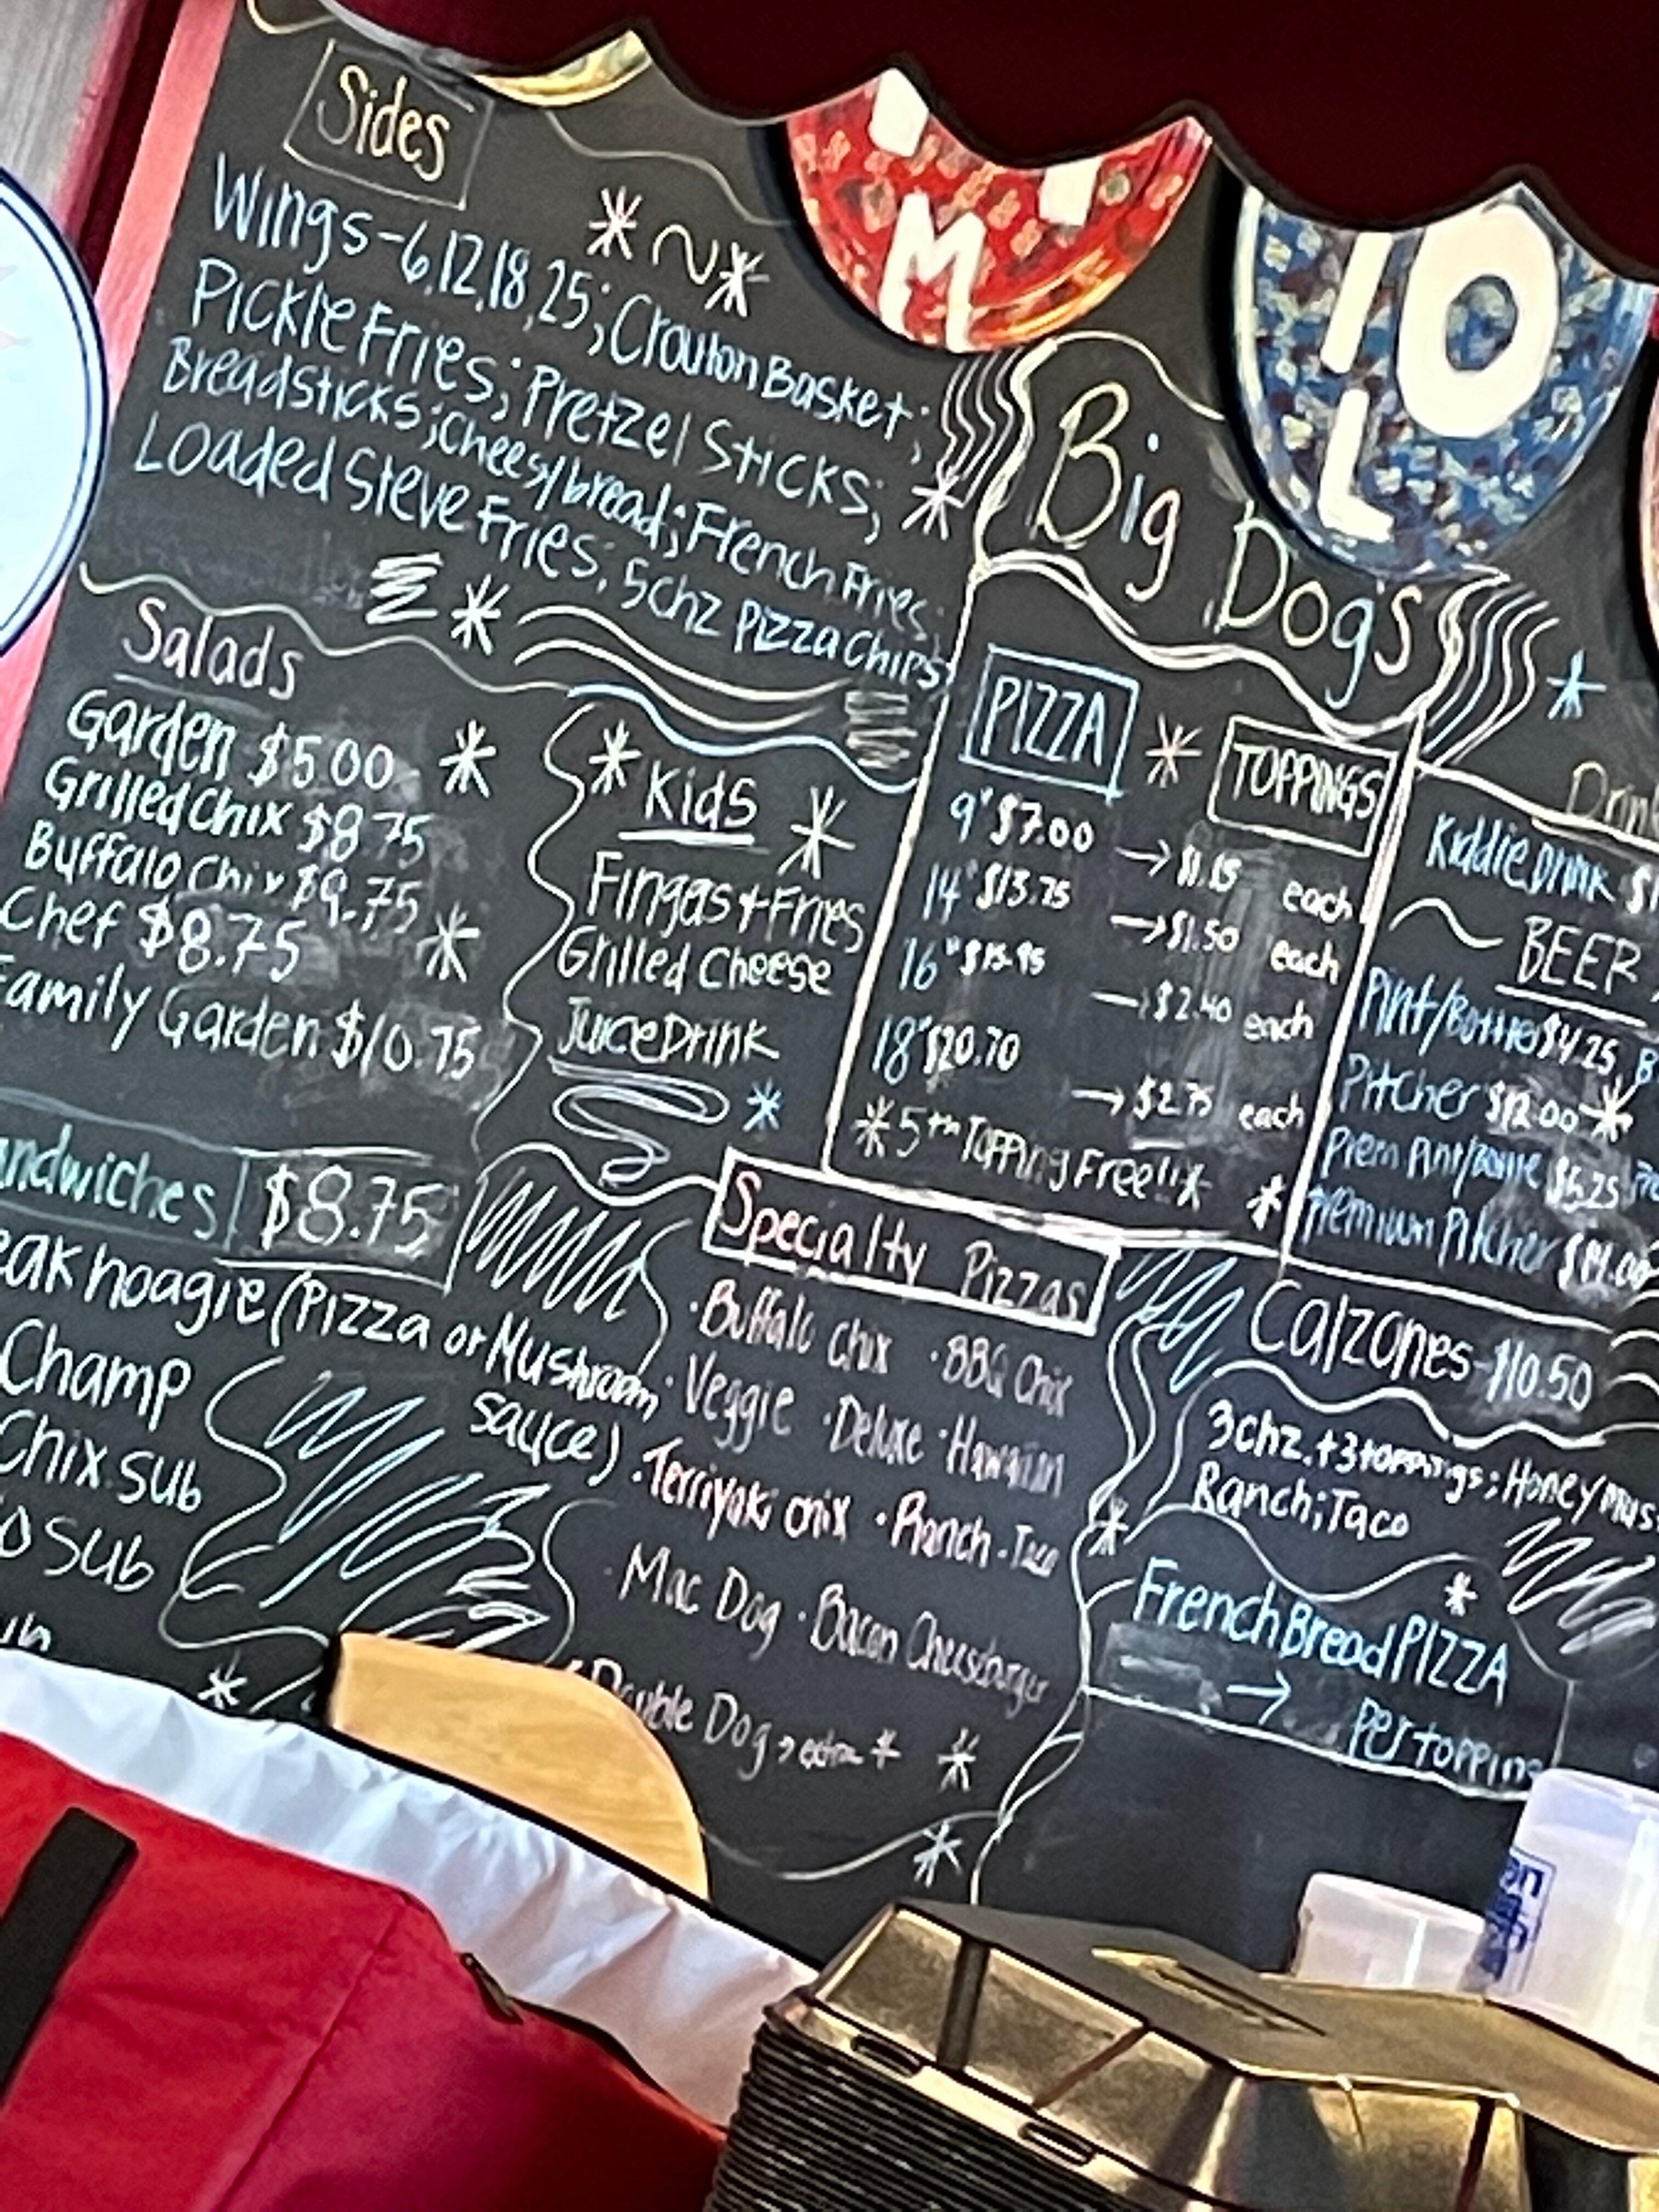 Sides
Wings-6,12,18,25; Crouton Basket;
Pickle Fries; Pretzel Sticks;
Breadsticks; Cheesybread; French Fries;
Loaded Steve Fries; 5chz Pizza Chips
M
10
L
Big Dog's
Salads
Garden $5.00
Grilled Chix $8.75
Buffalo Chix $9.75
Chef $8.75
Family Garden $10.75
Kids
Fingas + Fries
Grilled Cheese
Juice Drink
PIZZA
TOPPINGS
9" $7.00 → each
14" $13.75 → $1.50 each
16" → $2.40 each
18" $20.70 → $2.75 each
5th Topping Free!!
Kiddie Drink
BEER
Pint/Bottle $4.25
Pitcher $12.00
Prem Pint/Bottle
Premium Pitcher
ndwiches $8.75
eak hoagie (Pizza or Mushroom
sauce)
Champ
Chix sub
o Sub
Specialty Pizzas
· Buffalo Chix · BBQ Chix
· Veggie · Deluxe
· Terriyaki Chix · Ranch · Taco
· Mac Dog · Bacon Cheeseburger
Double Dog → extra
Calzones - $10.50
3chz. + 3 toppings; Honey Mus
Ranch; Taco
French Bread PIZZA
→ per topping